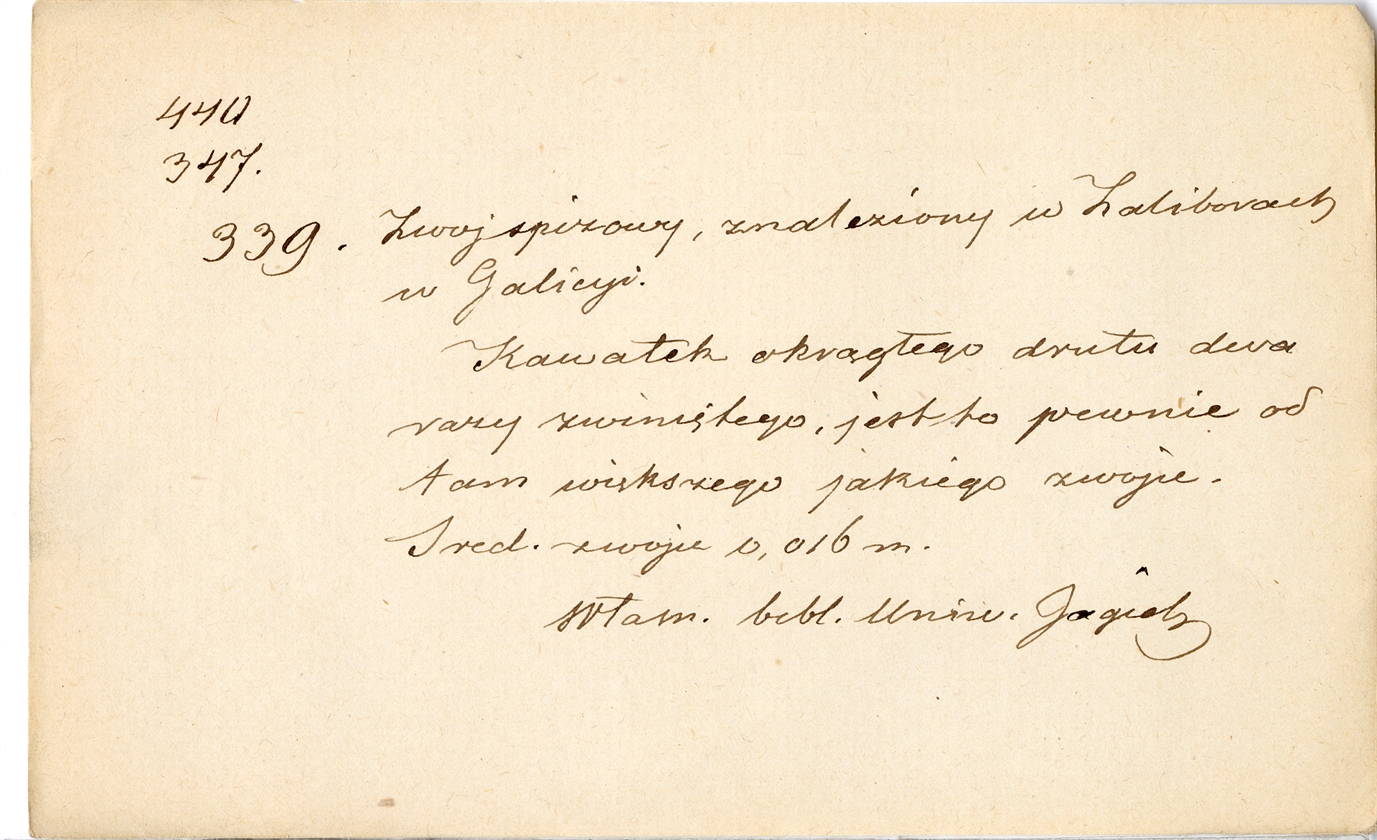 440
347.
339. Zwoj spizowy, znaleziony w Zaliborach
w Galicyi.
Kawałek okragłego drutu dwa
razy zwiniętego, jest to pewnie od
łam większego jakiego zwoju.
Sred. zwoju 0,016 m.
Włam. bibl. Uniw. Jagiel